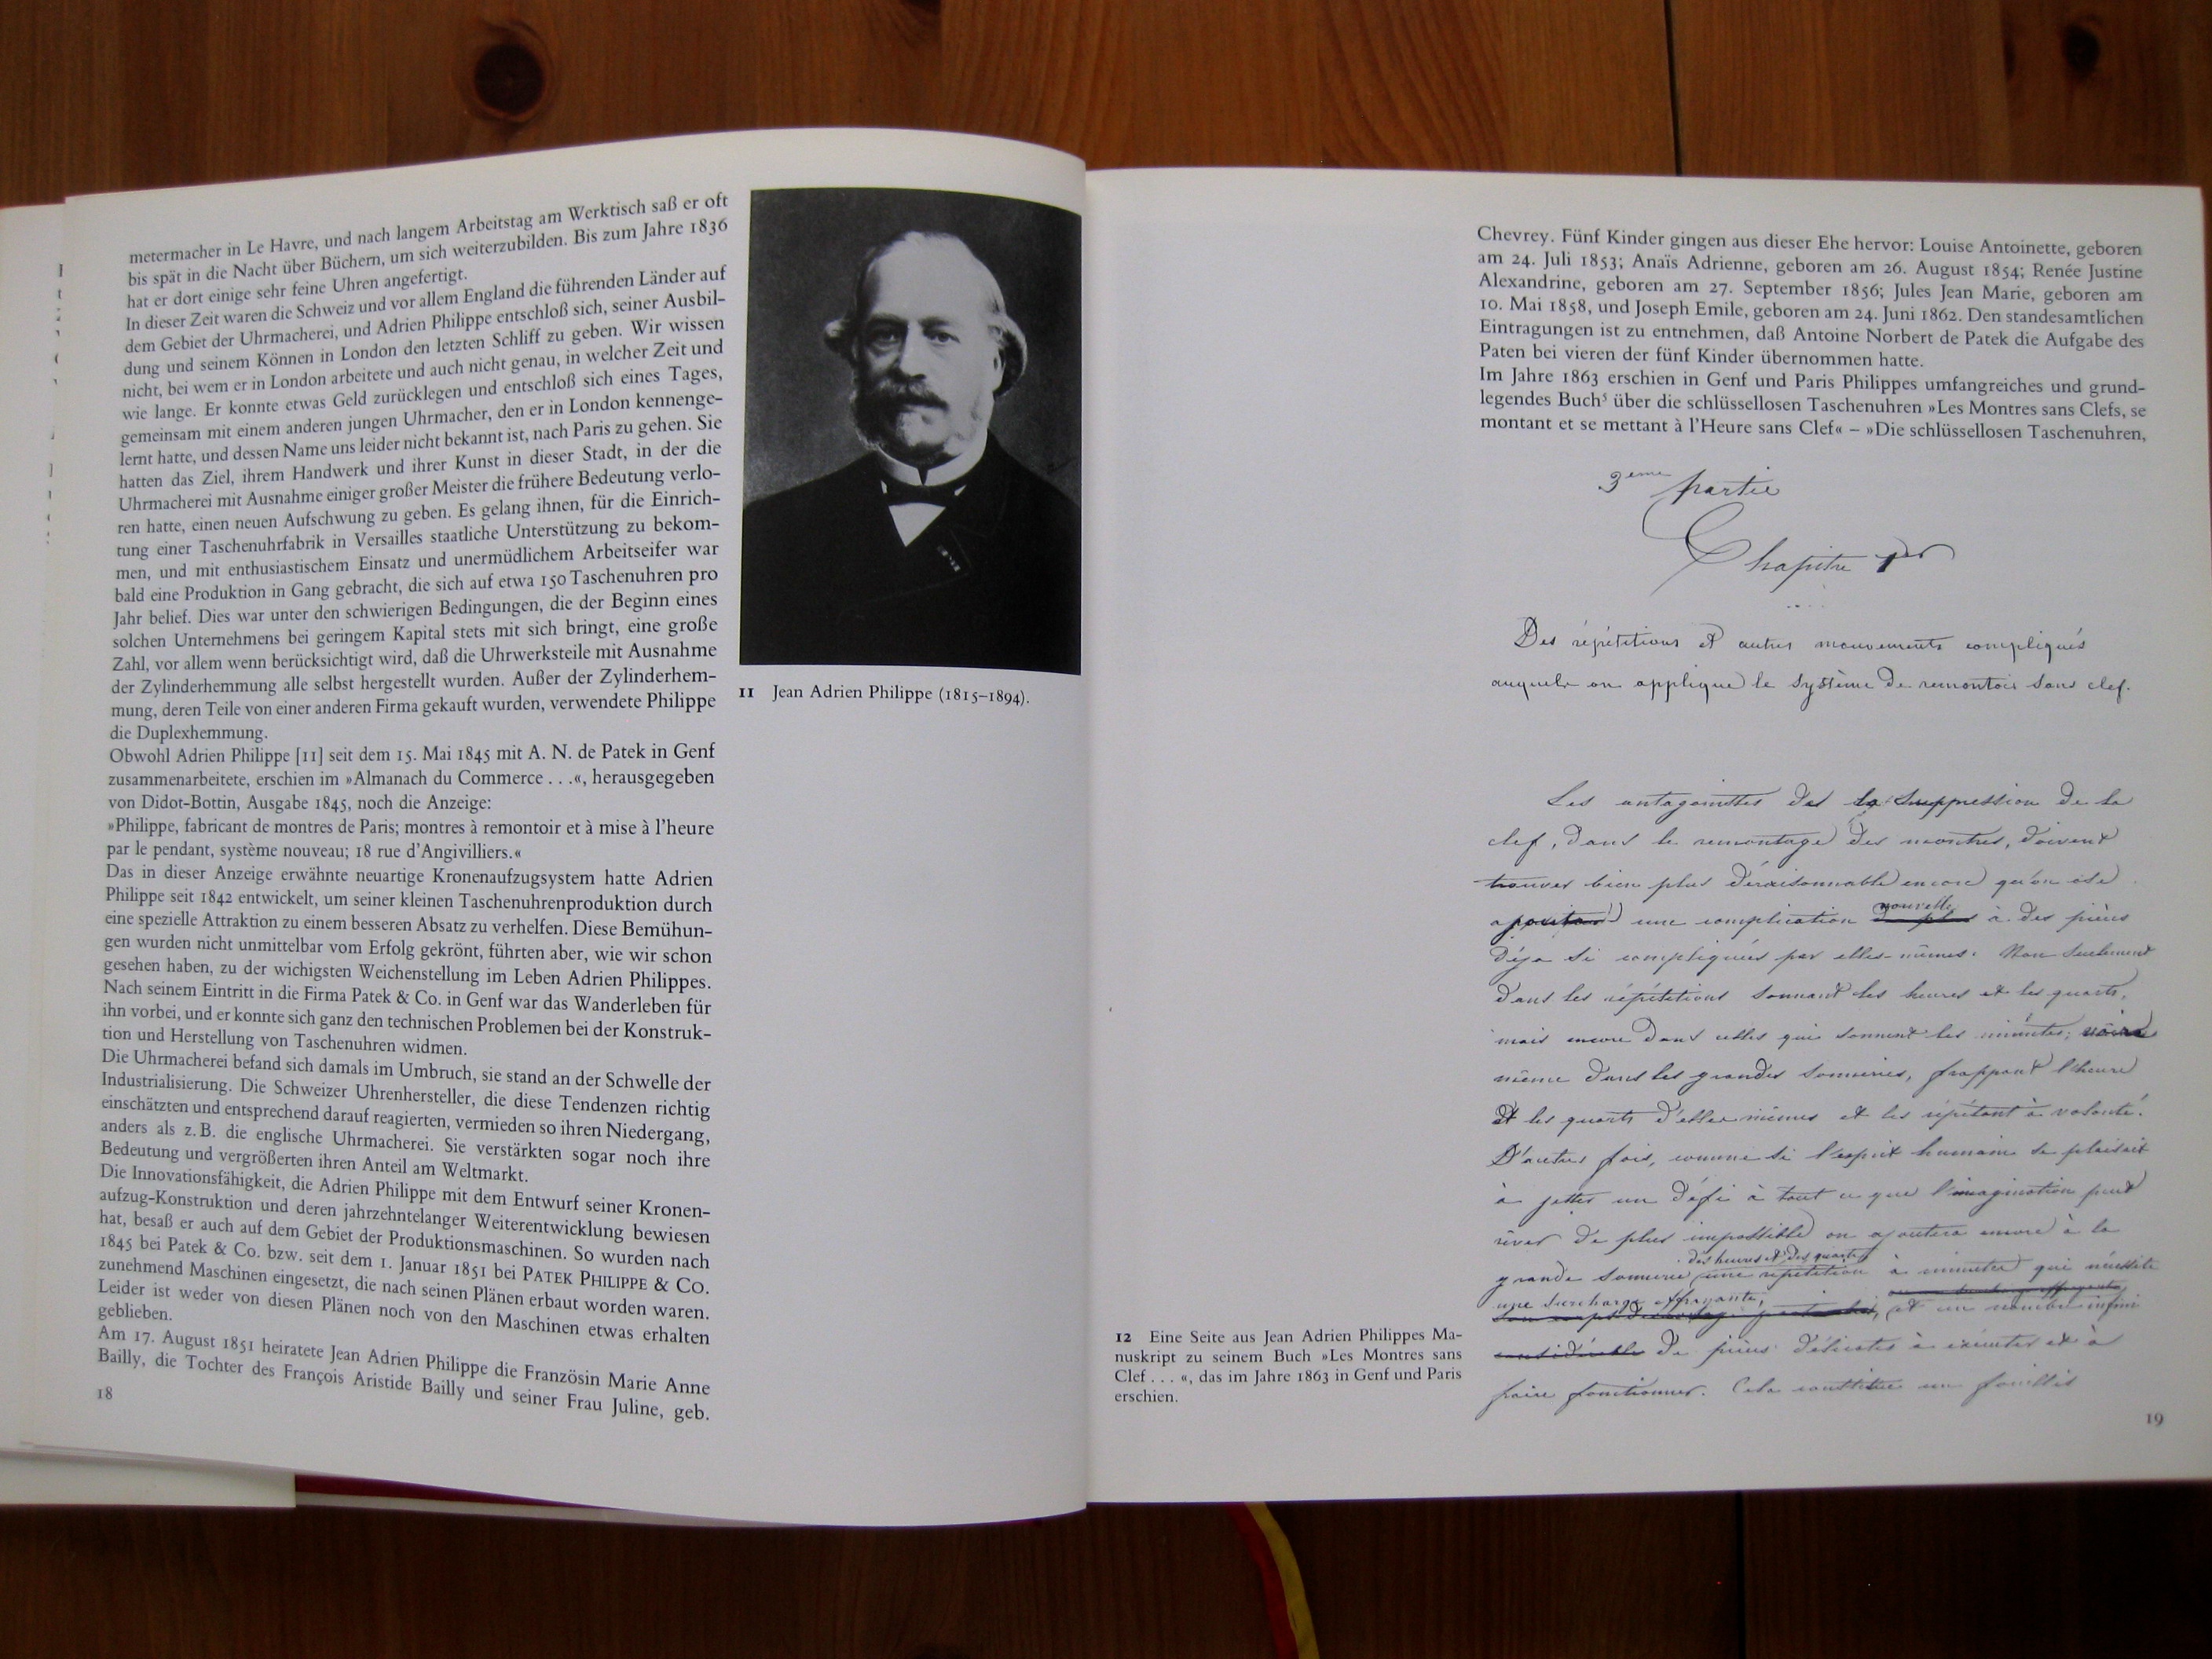 metermacher in Le Havre, und nach langem Arbeitstag am Werktisch saß er oft
bis spät in die Nacht über Büchern, um sich weiterzubilden. Bis zum Jahre 1836
hat er dort einige sehr feine Uhren angefertigt.
In dieser Zeit waren die Schweiz und vor allem England die führenden Länder auf
dem Gebiet der Uhrmacherei, und Adrien Philippe entschloß sich, seiner Ausbil-
dung und seinem Können in London den letzten Schliff zu geben. Wir wissen
nicht, bei wem er in London arbeitete und auch nicht genau, in welcher Zeit und
wie lange. Er konnte etwas Geld zurücklegen und entschloß sich eines Tages,
gemeinsam mit einem anderen jungen Uhrmacher, den er in London kennenge-
lernt hatte, und dessen Name uns leider nicht bekannt ist, nach Paris zu gehen. Sie
hatten das Ziel, ihrem Handwerk und ihrer Kunst in dieser Stadt, in der die
Uhrmacherei mit Ausnahme einiger großer Meister die frühere Bedeutung verlo-
ren hatte, einen neuen Aufschwung zu geben. Es gelang ihnen, für die Einrich-
tung einer Taschenuhrfabrik in Versailles staatliche Unterstützung zu bekom-
men, und mit enthusiastischem Einsatz und unermüdlichem Arbeitseifer war
bald eine Produktion in Gang gebracht, die sich auf etwa 150 Taschenuhren pro
Jahr belief. Dies war unter den schwierigen Bedingungen, die der Beginn eines
solchen Unternehmens bei geringem Kapital stets mit sich bringt, eine große
Zahl, vor allem wenn berücksichtigt wird, daß die Uhrwerksteile mit Ausnahme
der Zylinderhemmung alle selbst hergestellt wurden. Außer der Zylinderhem-
mung, deren Teile von einer anderen Firma gekauft wurden, verwendete Philippe
die Duplexhemmung.
Obwohl Adrien Philippe [11] seit dem 15. Mai 1845 mit A. N. de Patek in Genf
zusammenarbeitete, erschien im »Almanach du Commerce . . .«, herausgegeben
von Didot-Bottin, Ausgabe 1845, noch die Anzeige:
»Philippe, fabricant de montres de Paris; montres à remontoir et à mise à l'heure
par le pendant, système nouveau; 18 rue d'Angivilliers.«
Das in dieser Anzeige erwähnte neuartige Kronenaufzugsystem hatte Adrien
Philippe seit 1842 entwickelt, um seiner kleinen Taschenuhrenproduktion durch
eine spezielle Attraktion zu einem besseren Absatz zu verhelfen. Diese Bemühun-
gen wurden nicht unmittelbar vom Erfolg gekrönt, führten aber, wie wir schon
gesehen haben, zu der wichigsten Weichenstellung im Leben Adrien Philippes.
Nach seinem Eintritt in die Firma Patek & Co. in Genf war das Wanderleben für
ihn vorbei, und er konnte sich ganz den technischen Problemen bei der Konstruk-
tion und Herstellung von Taschenuhren widmen.
Die Uhrmacherei befand sich damals im Umbruch, sie stand an der Schwelle der
Industrialisierung. Die Schweizer Uhrenhersteller, die diese Tendenzen richtig
einschätzten und entsprechend darauf reagierten, vermieden so ihren Niedergang,
anders als z. B. die englische Uhrmacherei. Sie verstärkten sogar noch ihre
Bedeutung und vergrößerten ihren Anteil am Weltmarkt.
Die Innovationsfähigkeit, die Adrien Philippe mit dem Entwurf seiner Kronen-
aufzug-Konstruktion und deren jahrzehntelanger Weiterentwicklung bewiesen
hat, besaß er auch auf dem Gebiet der Produktionsmaschinen. So wurden nach
1845 bei Patek & Co. bzw. seit dem 1. Januar 1851 bei PATEK PHILIPPE & CO.
zunehmend Maschinen eingesetzt, die nach seinen Plänen erbaut worden waren.
Leider ist weder von diesen Plänen noch von den Maschinen etwas erhalten
geblieben.
Am 17. August 1851 heiratete Jean Adrien Philippe die Französin Marie Anne
Bailly, die Tochter des François Aristide Bailly und seiner Frau Juline, geb.
18
11 Jean Adrien Philippe (1815–1894).
Chevrey. Fünf Kinder gingen aus dieser Ehe hervor: Louise Antoinette, geboren
am 24. Juli 1853; Anaïs Adrienne, geboren am 26. August 1854; Renée Justine
Alexandrine, geboren am 27. September 1856; Jules Jean Marie, geboren am
10. Mai 1858, und Joseph Emile, geboren am 24. Juni 1862. Den standesamtlichen
Eintragungen ist zu entnehmen, daß Antoine Norbert de Patek die Aufgabe des
Paten bei vieren der fünf Kinder übernommen hatte.
Im Jahre 1863 erschien in Genf und Paris Philippes umfangreiches und grund-
legendes Buch⁵ über die schlüssellosen Taschenuhren »Les Montres sans Clefs, se
montant et se mettant à l'Heure sans Clef« – »Die schlüssellosen Taschenuhren,
3eme partie
Chapitre 1er
Des répétitions et autres mouvements compliqués
auquels on applique le système de remontoir sans clef.
Les antagonistes de la suppression de la
clef, dans le remontage des montres, doivent
trouver bien plus déraisonnable encore qu'on ose
une complication nouvelle à des pièces
déja si compliquées par elles-mêmes. Non seulement
dans les répétitions sonnant les heures et les quarts,
mais encore dans celles qui sonnent les minutes;
même dans les grandes sonneries, frappant l'heure
et les quarts d'elles mêmes et les répétant à volonté.
D'autres fois, comme si l'esprit humain se plaisait
à jetter un défi à tout ce que l'imagination peut
rêver de plus impossible on ajoutera encore à la
des heures et des quarts
grande sonnerie une répétition à minutes qui nécessite
une surcharge effrayante, et un nombre infini
de pièces délicates à exécuter et à
faire fonctionner. Cela constitue un fouillis
12 Eine Seite aus Jean Adrien Philippes Ma-
nuskript zu seinem Buch »Les Montres sans
Clef . . . «, das im Jahre 1863 in Genf und Paris
erschien.
19